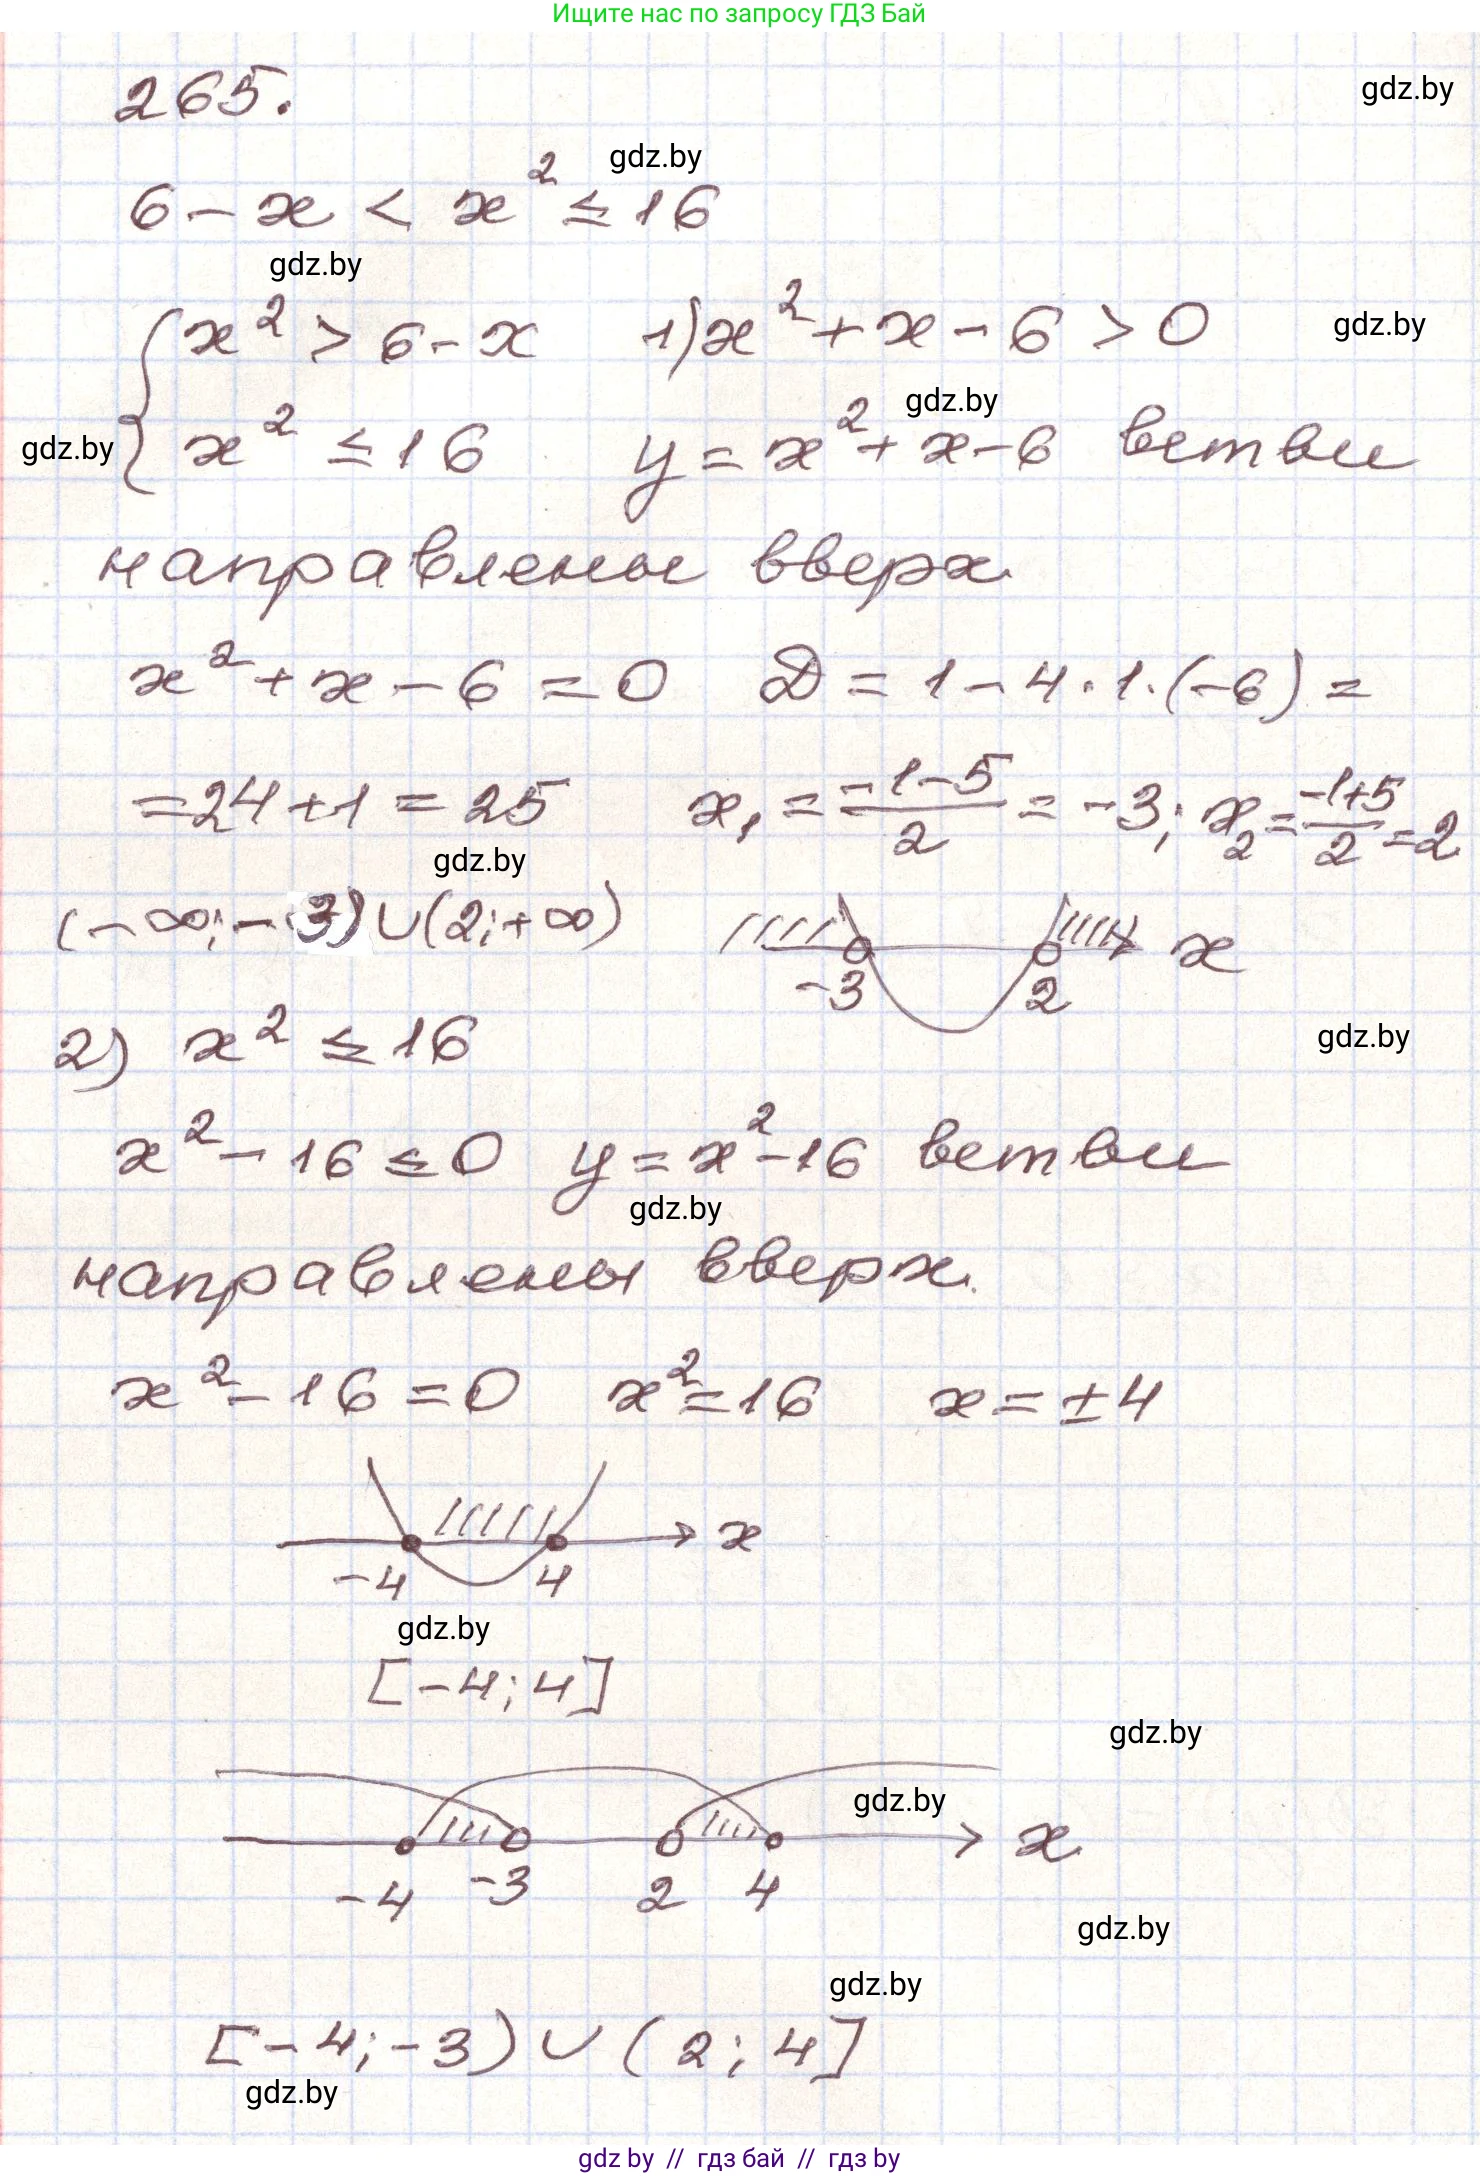 Ищите нас по запросу ГДЗ Бай
265.
gdz.by
gdz.by
6 - x < x² ≤ 16
gdz.by
{ x² > 6 - x 1) x² + x - 6 > 0
gdz.by
gdz.by
x² ≤ 16 y = x² + x - 6 ветви
gdz.by
направлены вверх.
x² + x - 6 = 0 D = 1 - 4 · 1 · (-6) =
= 24 + 1 = 25 x₁ = (-1-5)/2 = -3; x₂ = (-1+5)/2 = 2
gdz.by
(-∞; -3) ∪ (2; +∞) x
-3 2
gdz.by
2) x² ≤ 16
x² - 16 ≤ 0 y = x² - 16 ветви
gdz.by
направлены вверх.
x² - 16 = 0 x² = 16 x = ±4
x
-4 4
gdz.by
[-4; 4]
gdz.by
gdz.by
x
-4 -3 2 4
gdz.by
gdz.by
[-4; -3) ∪ (2; 4]
gdz.by
gdz by // гдз бай // гдз by